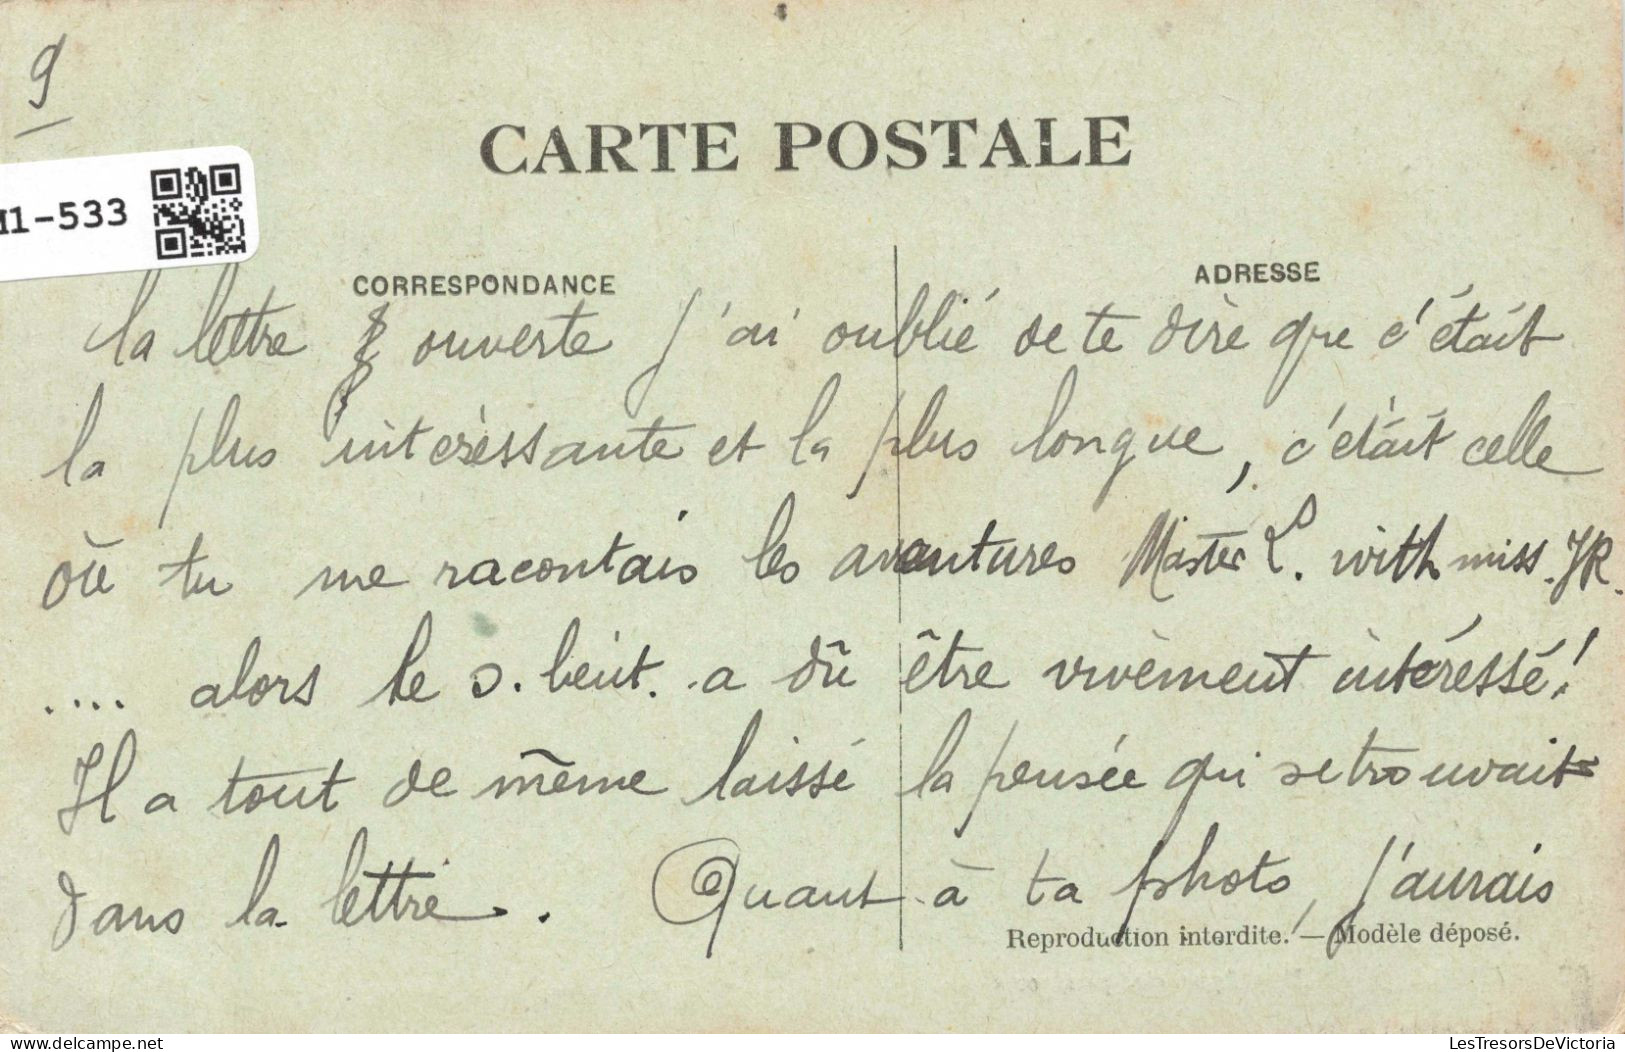 9
CARTE POSTALE
1-533
CORRESPONDANCE
ADRESSE
la lettre ouverte j'ai oublié de te dire que c'était
la plus intéressante et la plus longue, c'était celle
où tu me racontais les aventures Master L. with miss. JR.
.... alors le s. a dû être vivement intéressé!
Il a tout de même laissé la pensée qui se trouvait
dans la lettre. Quant à ta photo, j'aurais
Reproduction interdite. — Modèle déposé.
delcampe.net
LesTresorsDeVictoria